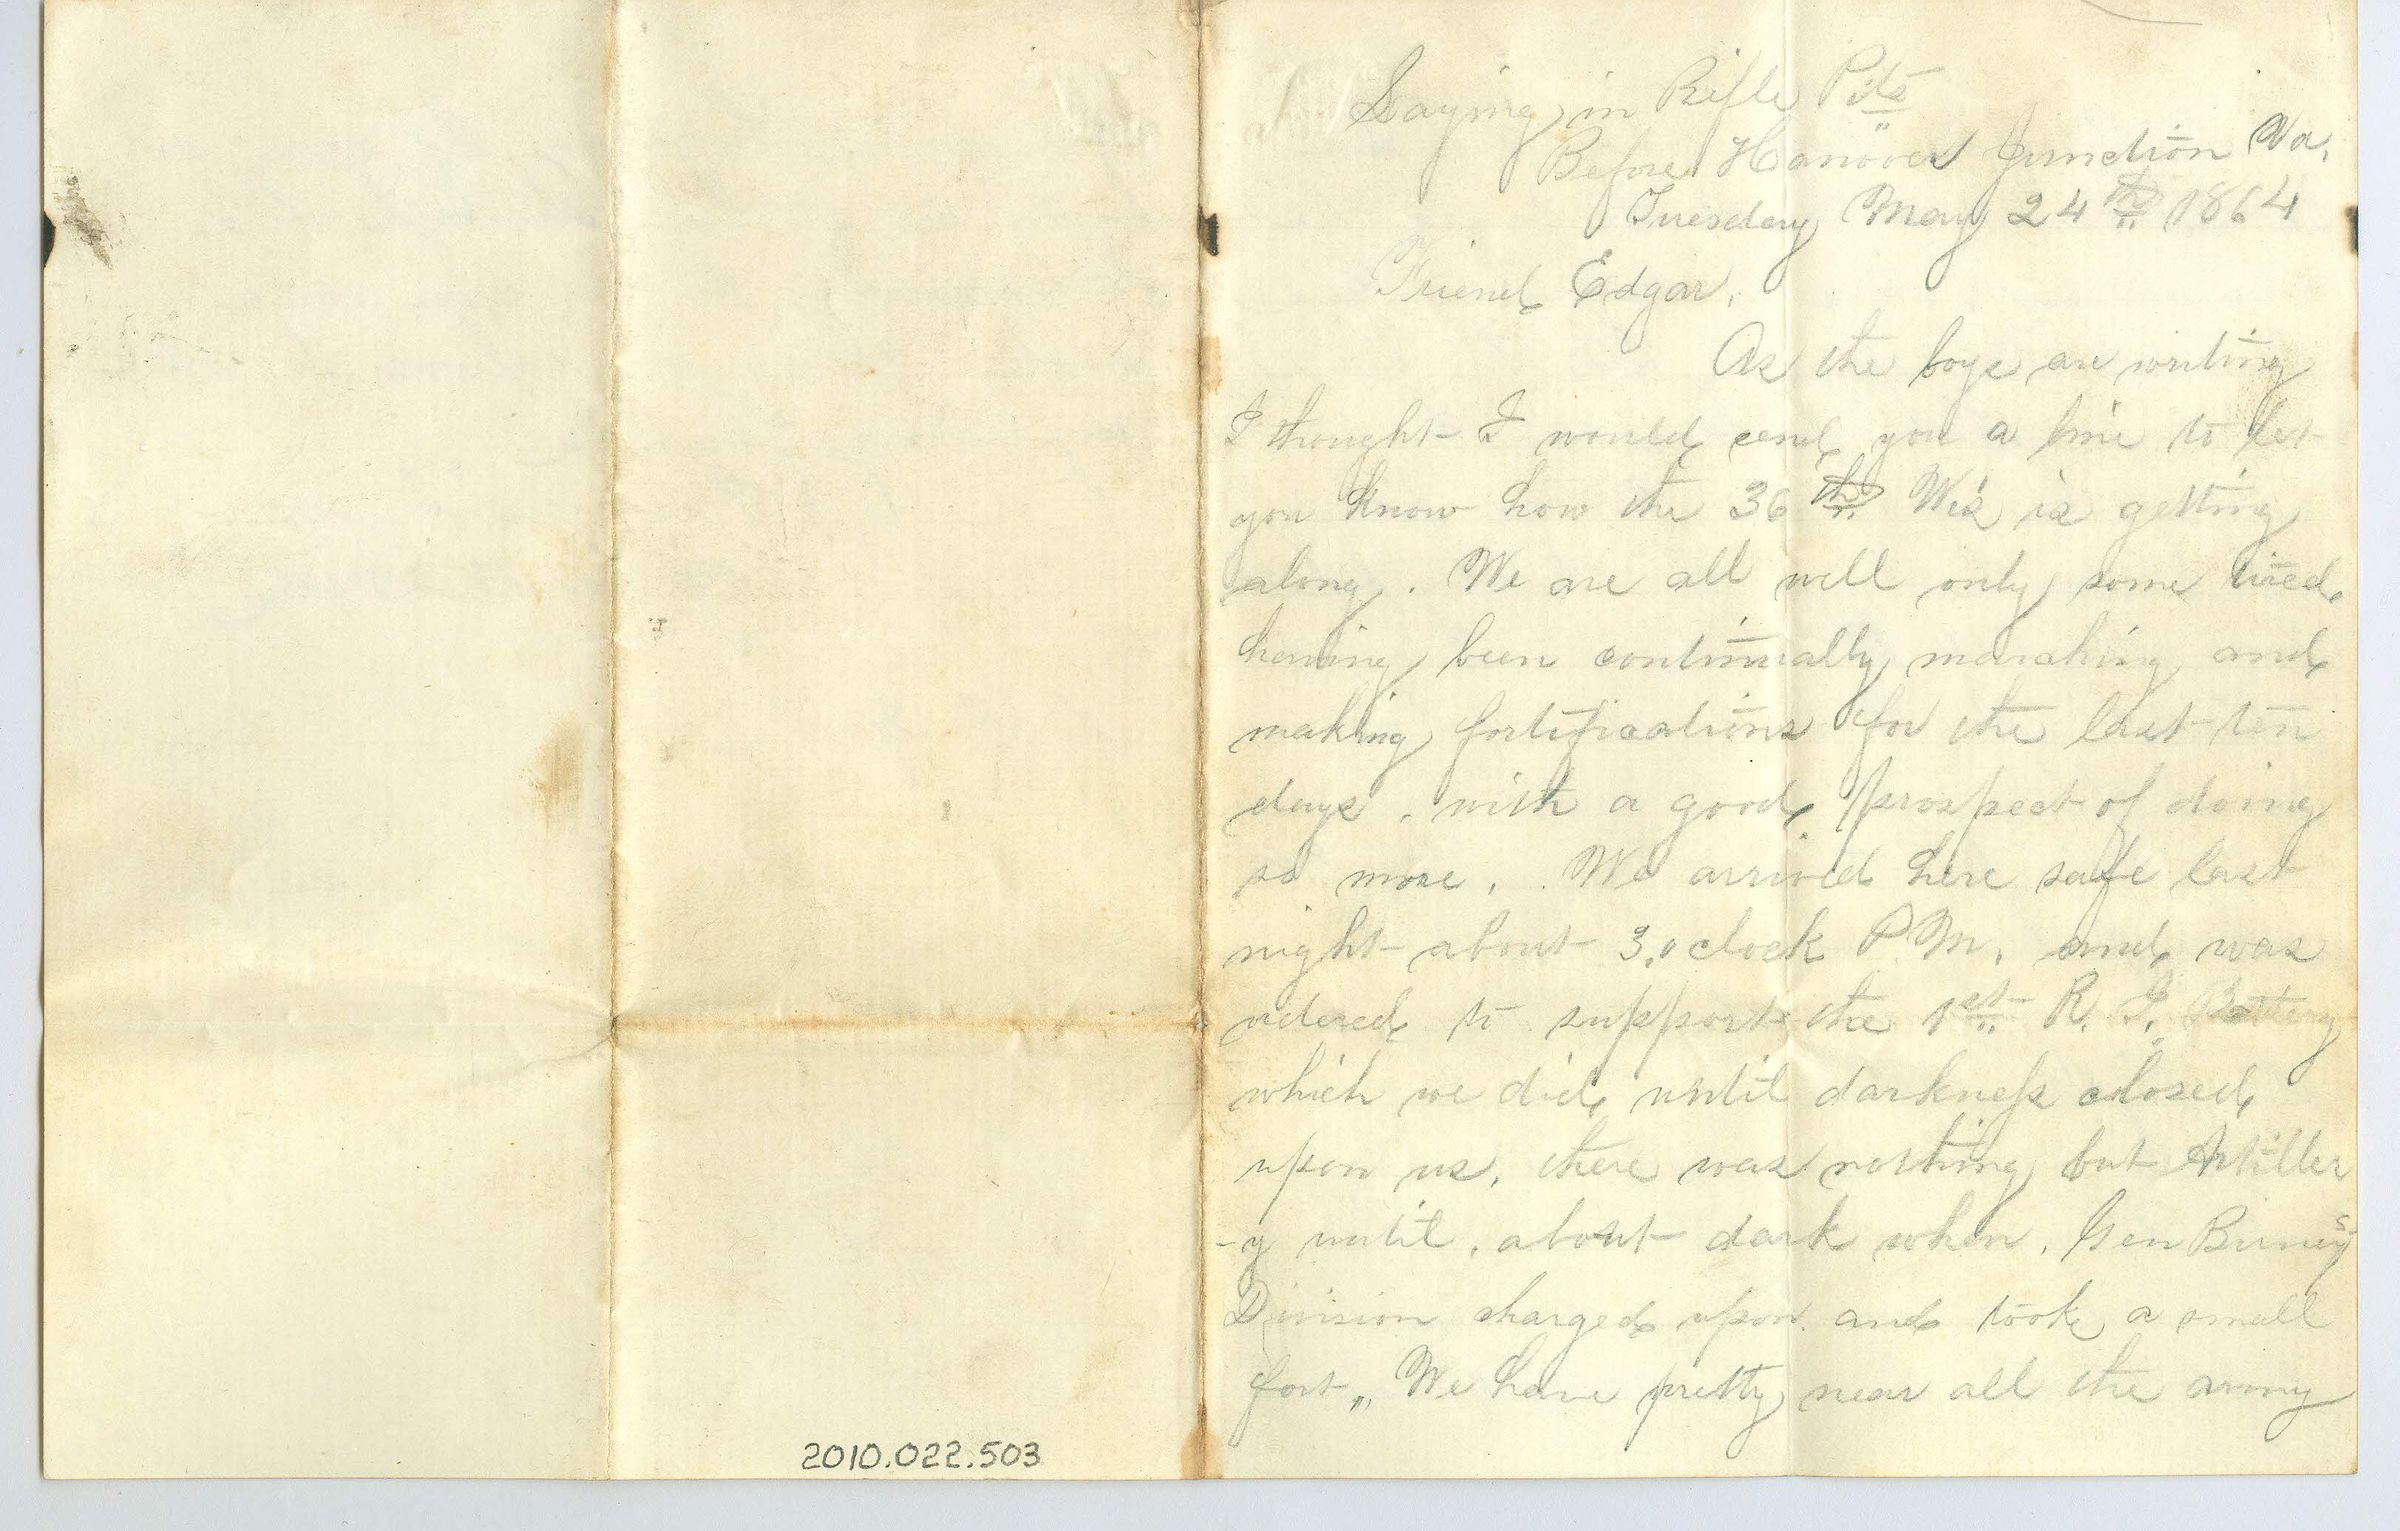 Laying in Rifle Pits
Before Hanover Junction Va.
Tuesday May 24th 1864
Friend Edgar,
As the boys are writing
I thought I would send you a line to let
you know how the 36th Wis is getting
along. We are all well only some tired
having been continually marching and
making fortifications for the last ten
days. with a good prospect of doing
so more. We arrived here safe last
night about 3,o clock P.M. and was
odered to support the 1st R. I. Battery
which we did until darkness closed
upon us, there was nothing but Artiller
-y until, about dark when, Gen Birneys
Division charged upon and took a small
fort,, We have pretty near all the army
2010.022.503